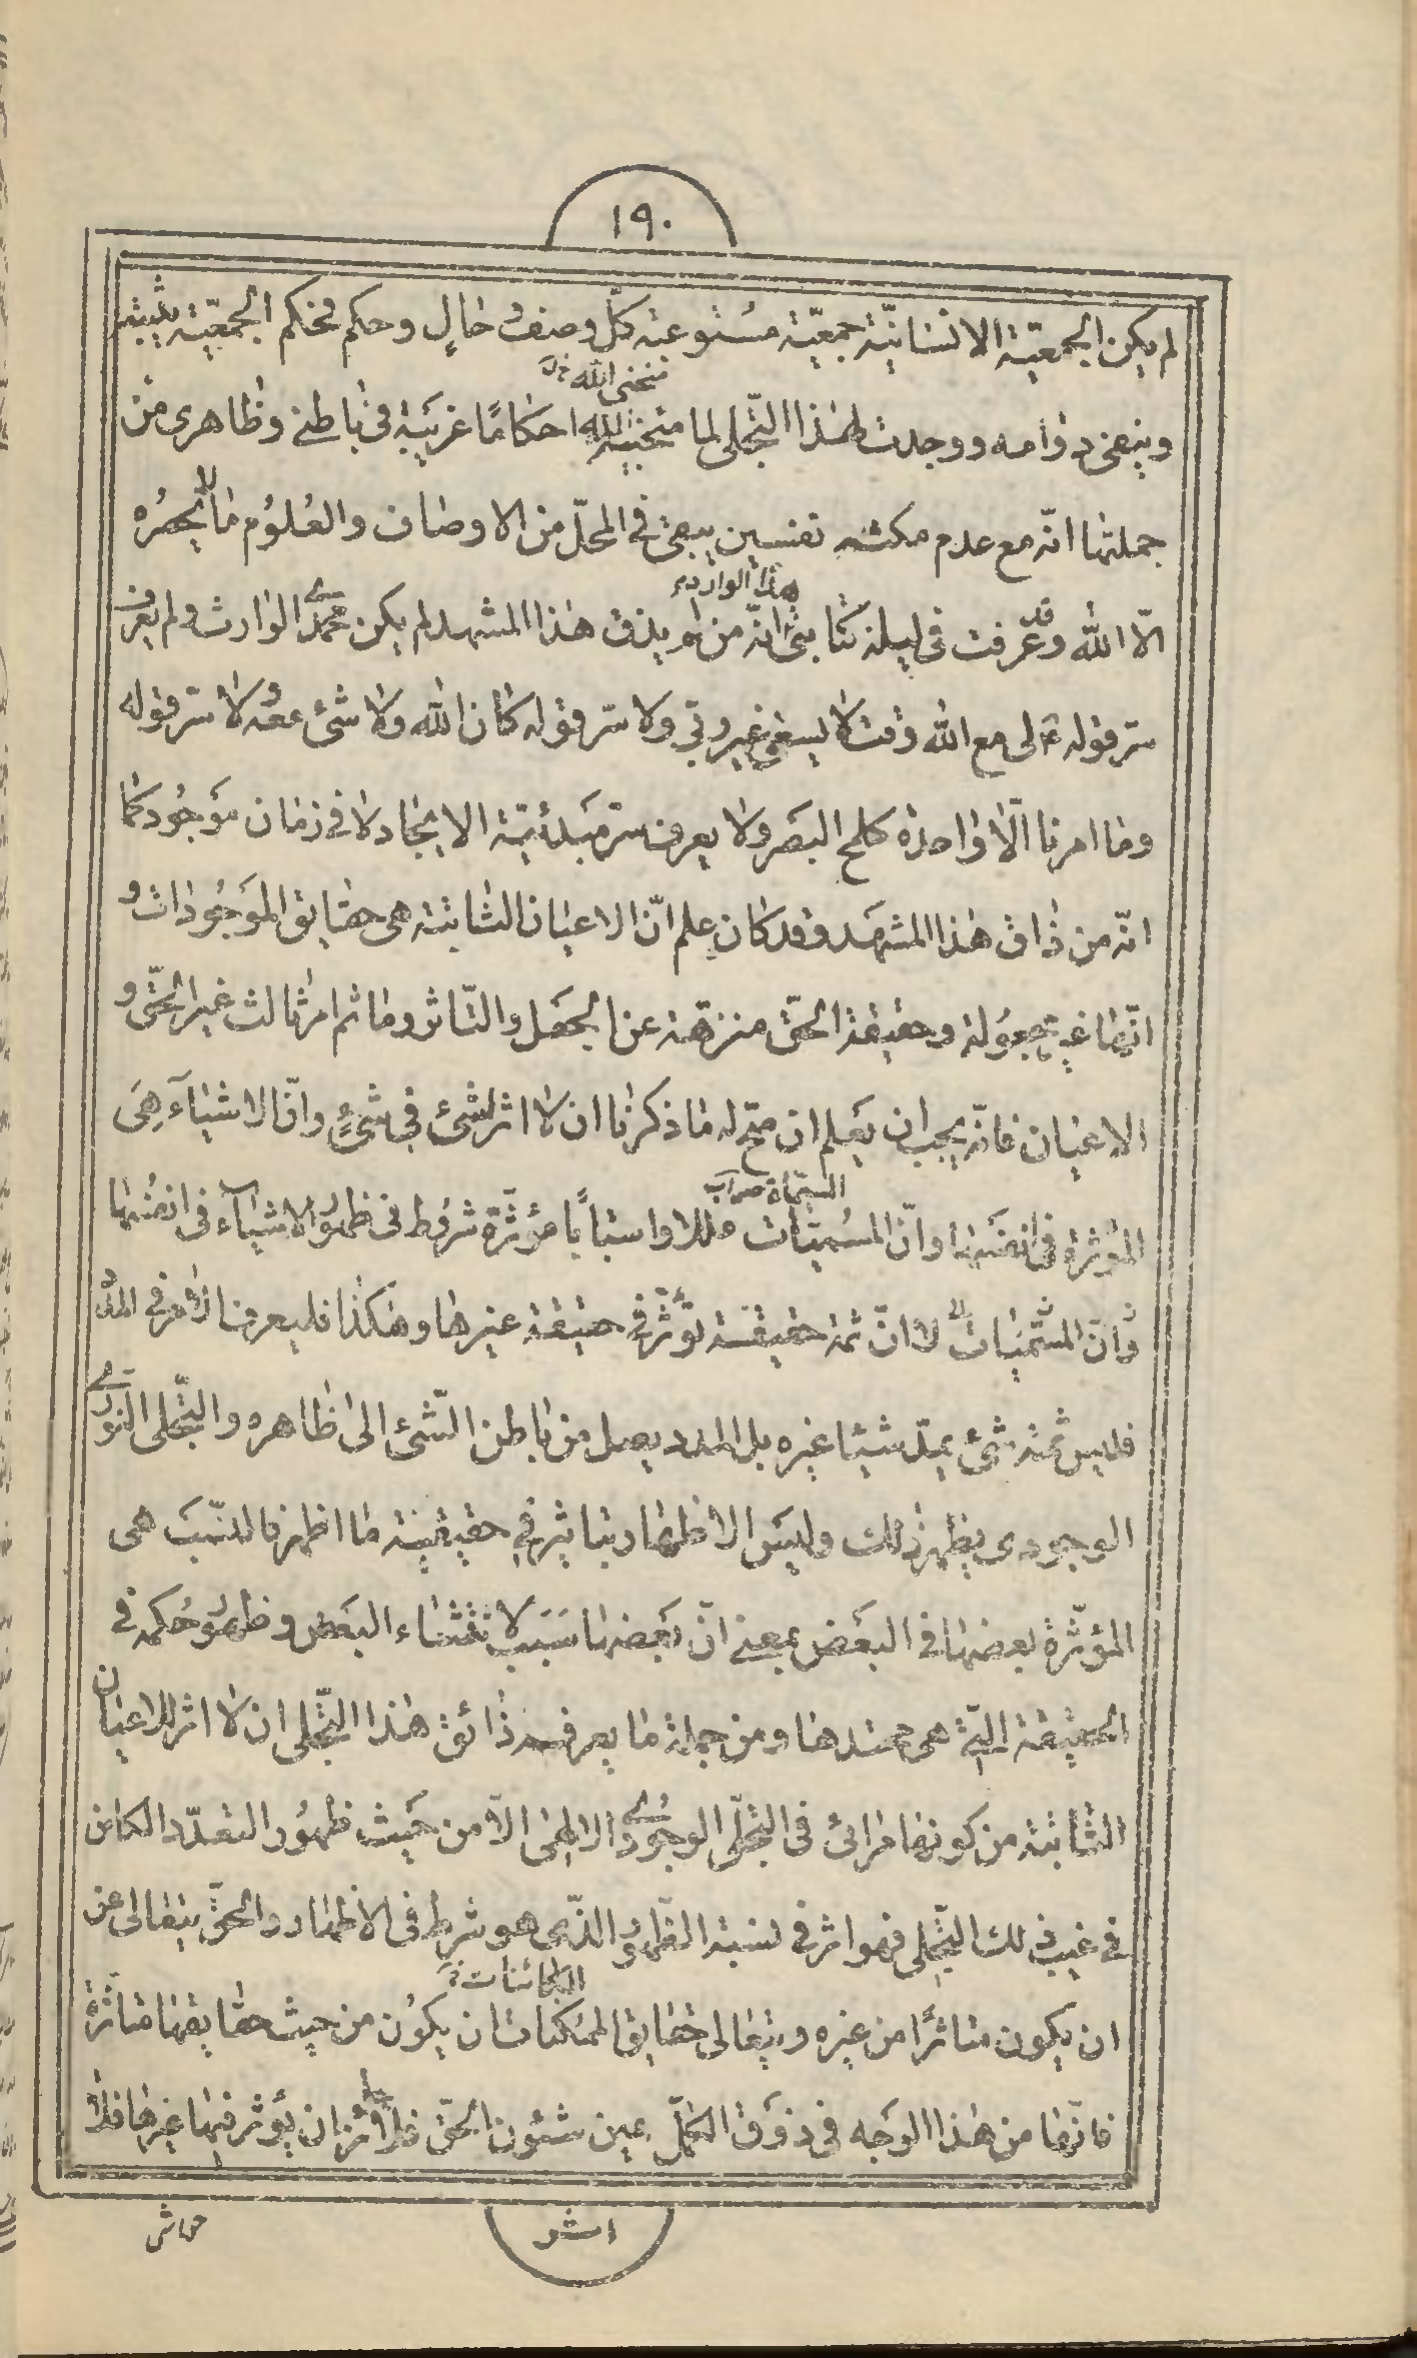 ١٩٠
لم يكن الجمعيّة الانسانيّة جمعيّة مستوعبة كلّ وصف وحالٍ وحكم فحكم الجمعيّة يثبته
منحنى الله خ‌ل
وينفى دوامه ووجدت لهذا التّجلى لما منحنيه الله احكامًا غريبة فى باطنى وظاهرى من
جملتها انّه مع عدم مكثه نفسين يبقى فى المحلّ من الاوصاف والعُلوُم ما لا يحصُره
هذا الوارد
الّا الله وقد عرفت فى ليلة كتابتى انّه من لم يذق هذا المشهد لم يكن محمّدىّ الوارث ولم يعرف
سرّ قوله لى مع الله وقت لا يسعنى غير ربّى ولا سرّ قوله كان الله ولا شئ معه ولا سرّ قوله
وما امرنا الّا واحدة كلمح البصر ولا يعرف سرّ مبدئيّة الايجاد لا فى زمان موجُود كما
انّه من ذاق هذا المشهد وقد كان علم انّ الاعيان الثابتة هى حقايق الموجُودات و
انّها غير مجعوُلة وحقيقة الحقّ منزهة عن الجعل والتّاثر وما ثم امر ثالث غير الحقّ و
الاعيان فانّه يجب ان يعلم ان صحّ له ما ذكرنا ان لا اثر لشئ فى شئٍ وانّ الاشياء هى
المسمّاة
المؤثرة فى انفسها وانّ المسُميّات عللا واسبابًا مؤثّرة شروُط فى ظهور الاشياء فى انفسُها
وانّ المسمّيات لا انّ ثمة حقيقة تؤثّر فى حقيقة غيرها وهكذا فليعرفنا الامر فى المدد
فليس ثمة شئ يمدّ شيئا غيره بل المدد يصل من باطن الشّئ الى ظاهره والتّجلى النورى
الوجودى يظهر ذلك وليس الاظهار بتاثير فى حقيقة ما اظهر فالنّسب هى
المؤثّرة بعضها فى البعض بمعنى انّ بعضها سبب لانتشاء البعض وظهوُر حُكمه فى
الحقيقة الّتى هى محتدها ومن جملة ما يعرفه ذائق هذا التّجلى ان لا اثر للاعيان
الثّابتة من كونها مرائى فى التّجلّى الوجُودى الالهى الّا من حيث ظهوُر التعدّد الكامن
فى غيب ذلك التّجلى فهو اثر فى نسبة الظّهور الّذى هو شرط فى الاظهار والحقّ يتعالى عن
الكائنات خ‌ل
ان يكون متاثرًا من غيره ويتعالى حقايق الممكنات ان يكوُن من حيث حقايقها متاثّرة
فانّها من هذا الوجه فى ذوق الكمّل عين شئون الحقّ فلا جايز ان يؤثر فيها غيرها فلا
اثر